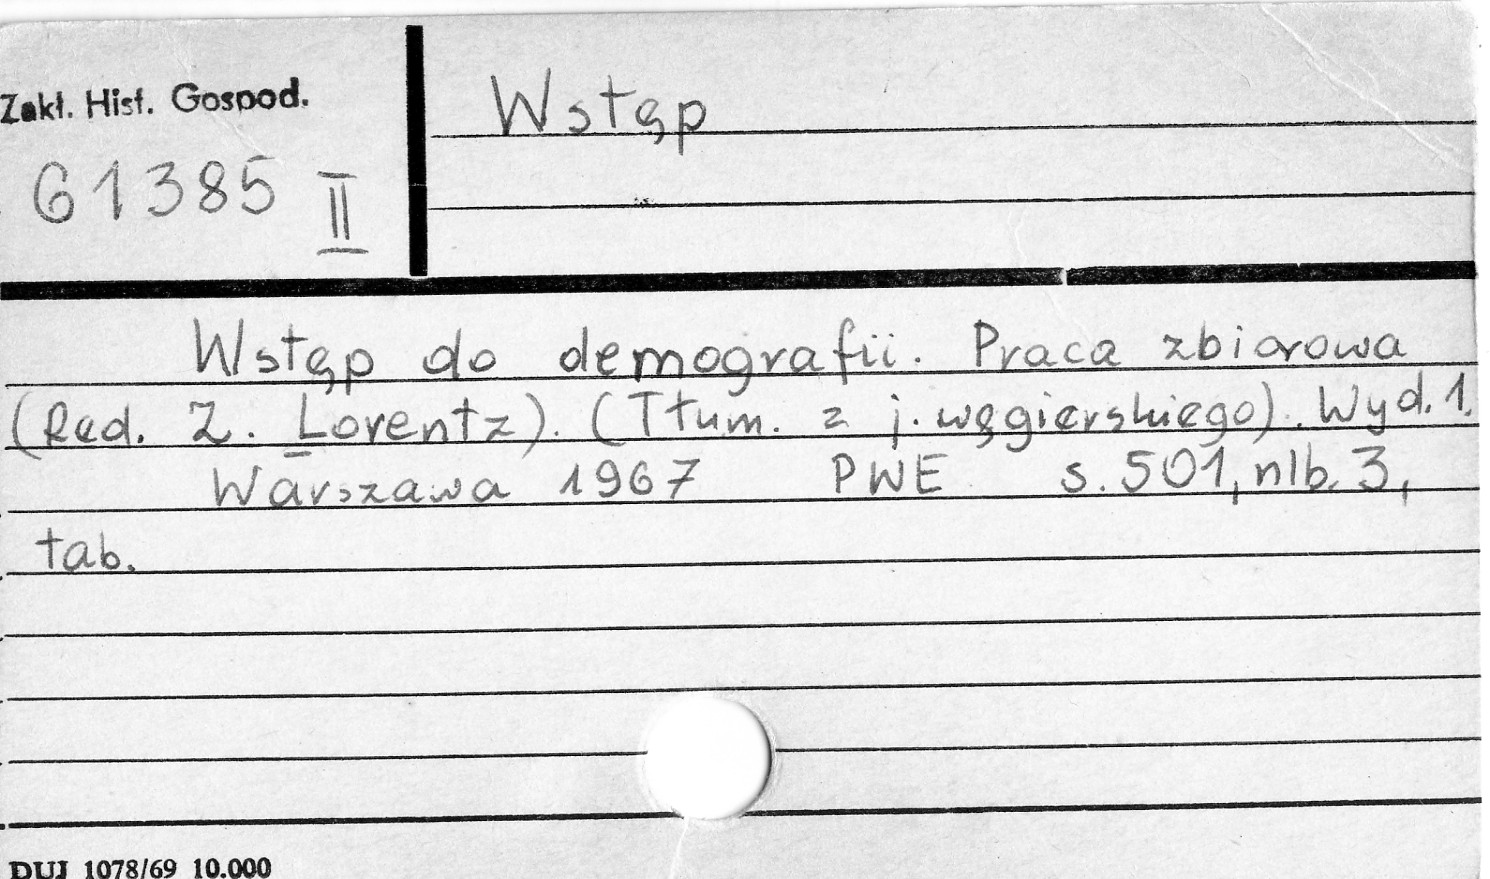 Zakł. Hist. Gospod.
61385 II
Wstęp
Wstęp do demografii. Praca zbiorowa
(Red. Z. Lorentz). (Tłum. z j. węgierskiego). Wyd. 1.
Warszawa 1967 PWE s. 501, nlb. 3,
tab.
DUJ 1078/69 10.000